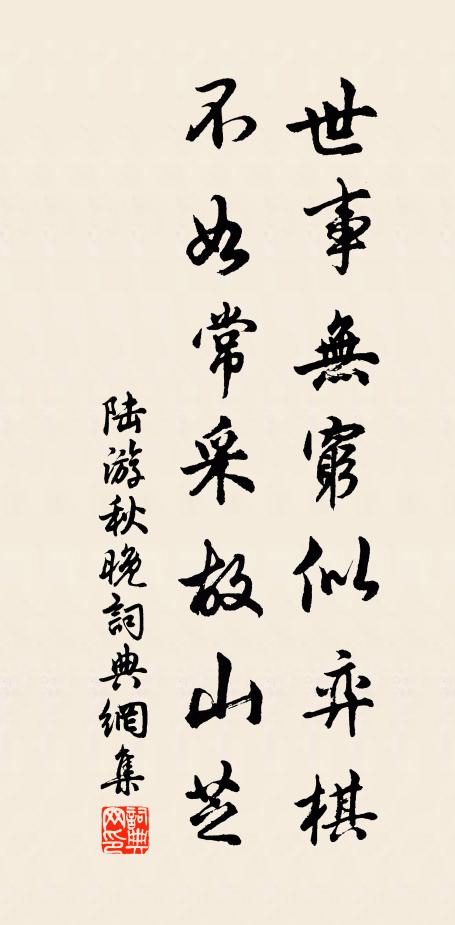 世事無窮似弈棋
不如常采故山芝
陆游秋晚詞典網集
詞典网印